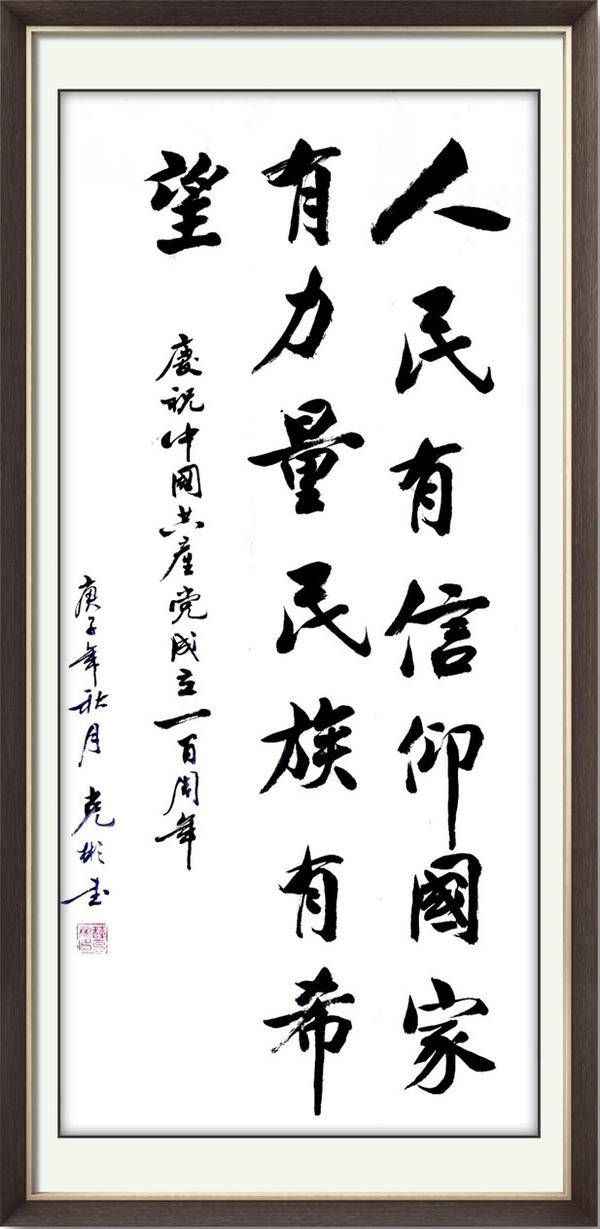 人民有信仰國家
有力量民族有希
望
慶祝中國共產党成立一百周年
庚子年秋月克彬书